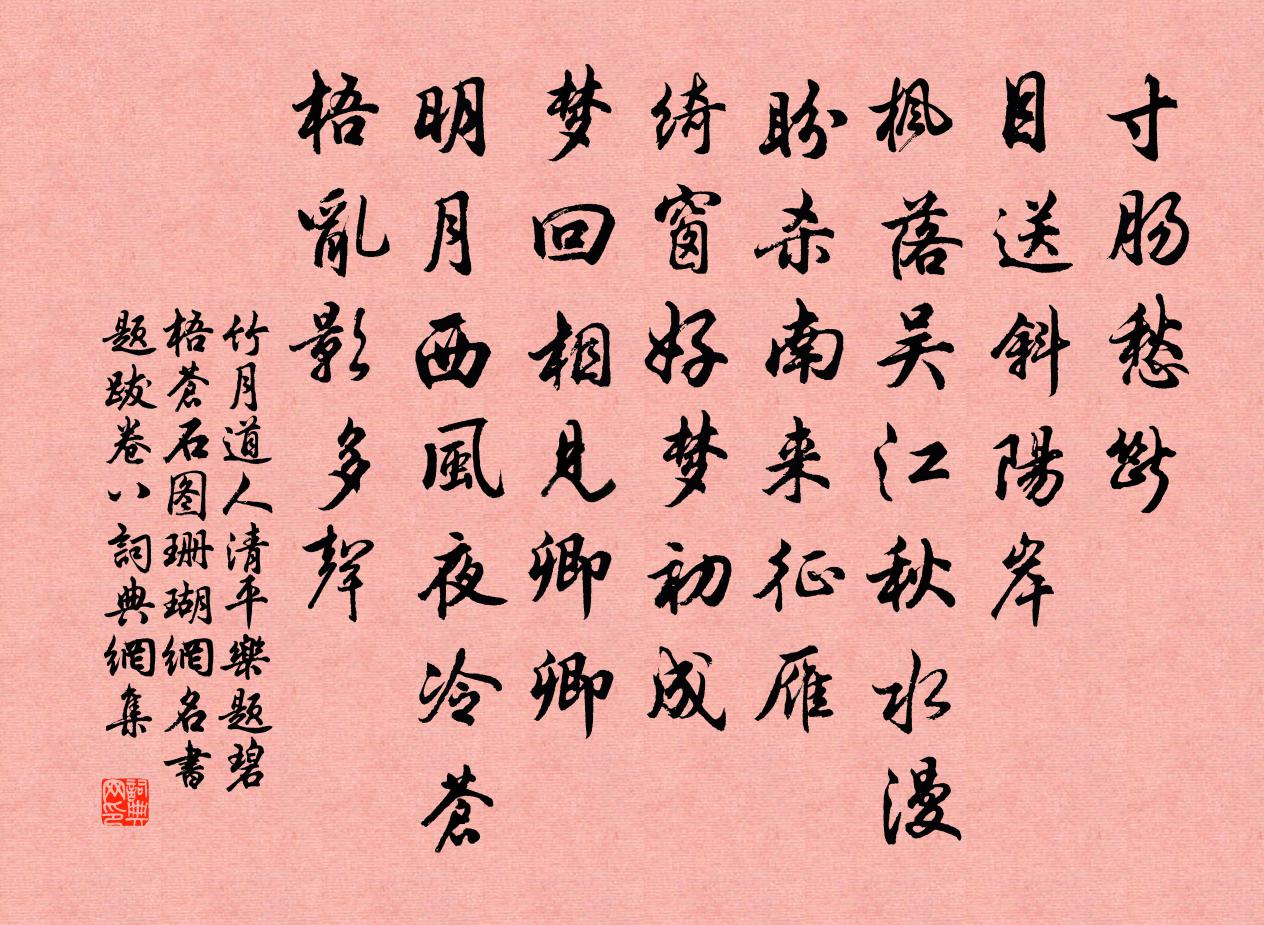 寸肠愁断
目送斜陽岸
枫落吴江秋水漫
盼杀南来征雁
绮窗好梦初成
梦回相见卿卿
明月西風夜冷蒼
梧亂影多聲
竹月道人清平樂题碧
梧蒼石图珊瑚網名書
题跋卷八詞典網集
詞典网印